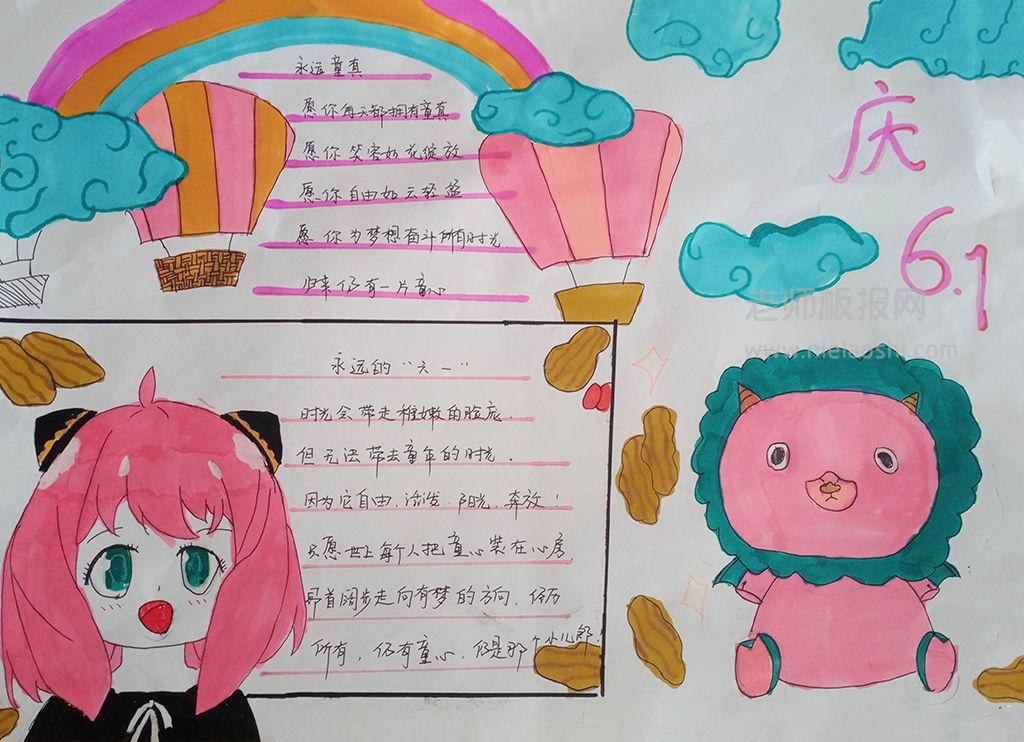 永远童真
愿你每天都拥有童真
愿你笑容如花绽放
愿你自由如云轻盈
愿你为梦想奋斗所有时光,
归来仍有一片童心
庆
6.1
老师板报网
永远的“六一”
时光会带走稚嫩的脸庞,
但无法带去童年的时光.
因为它自由,活泼,阳光,奔放!
只愿世上每个人把童心装在心房,
昂首阔步走向有梦的方向,经历
所有,仍有童心,仍是那个小儿郎!